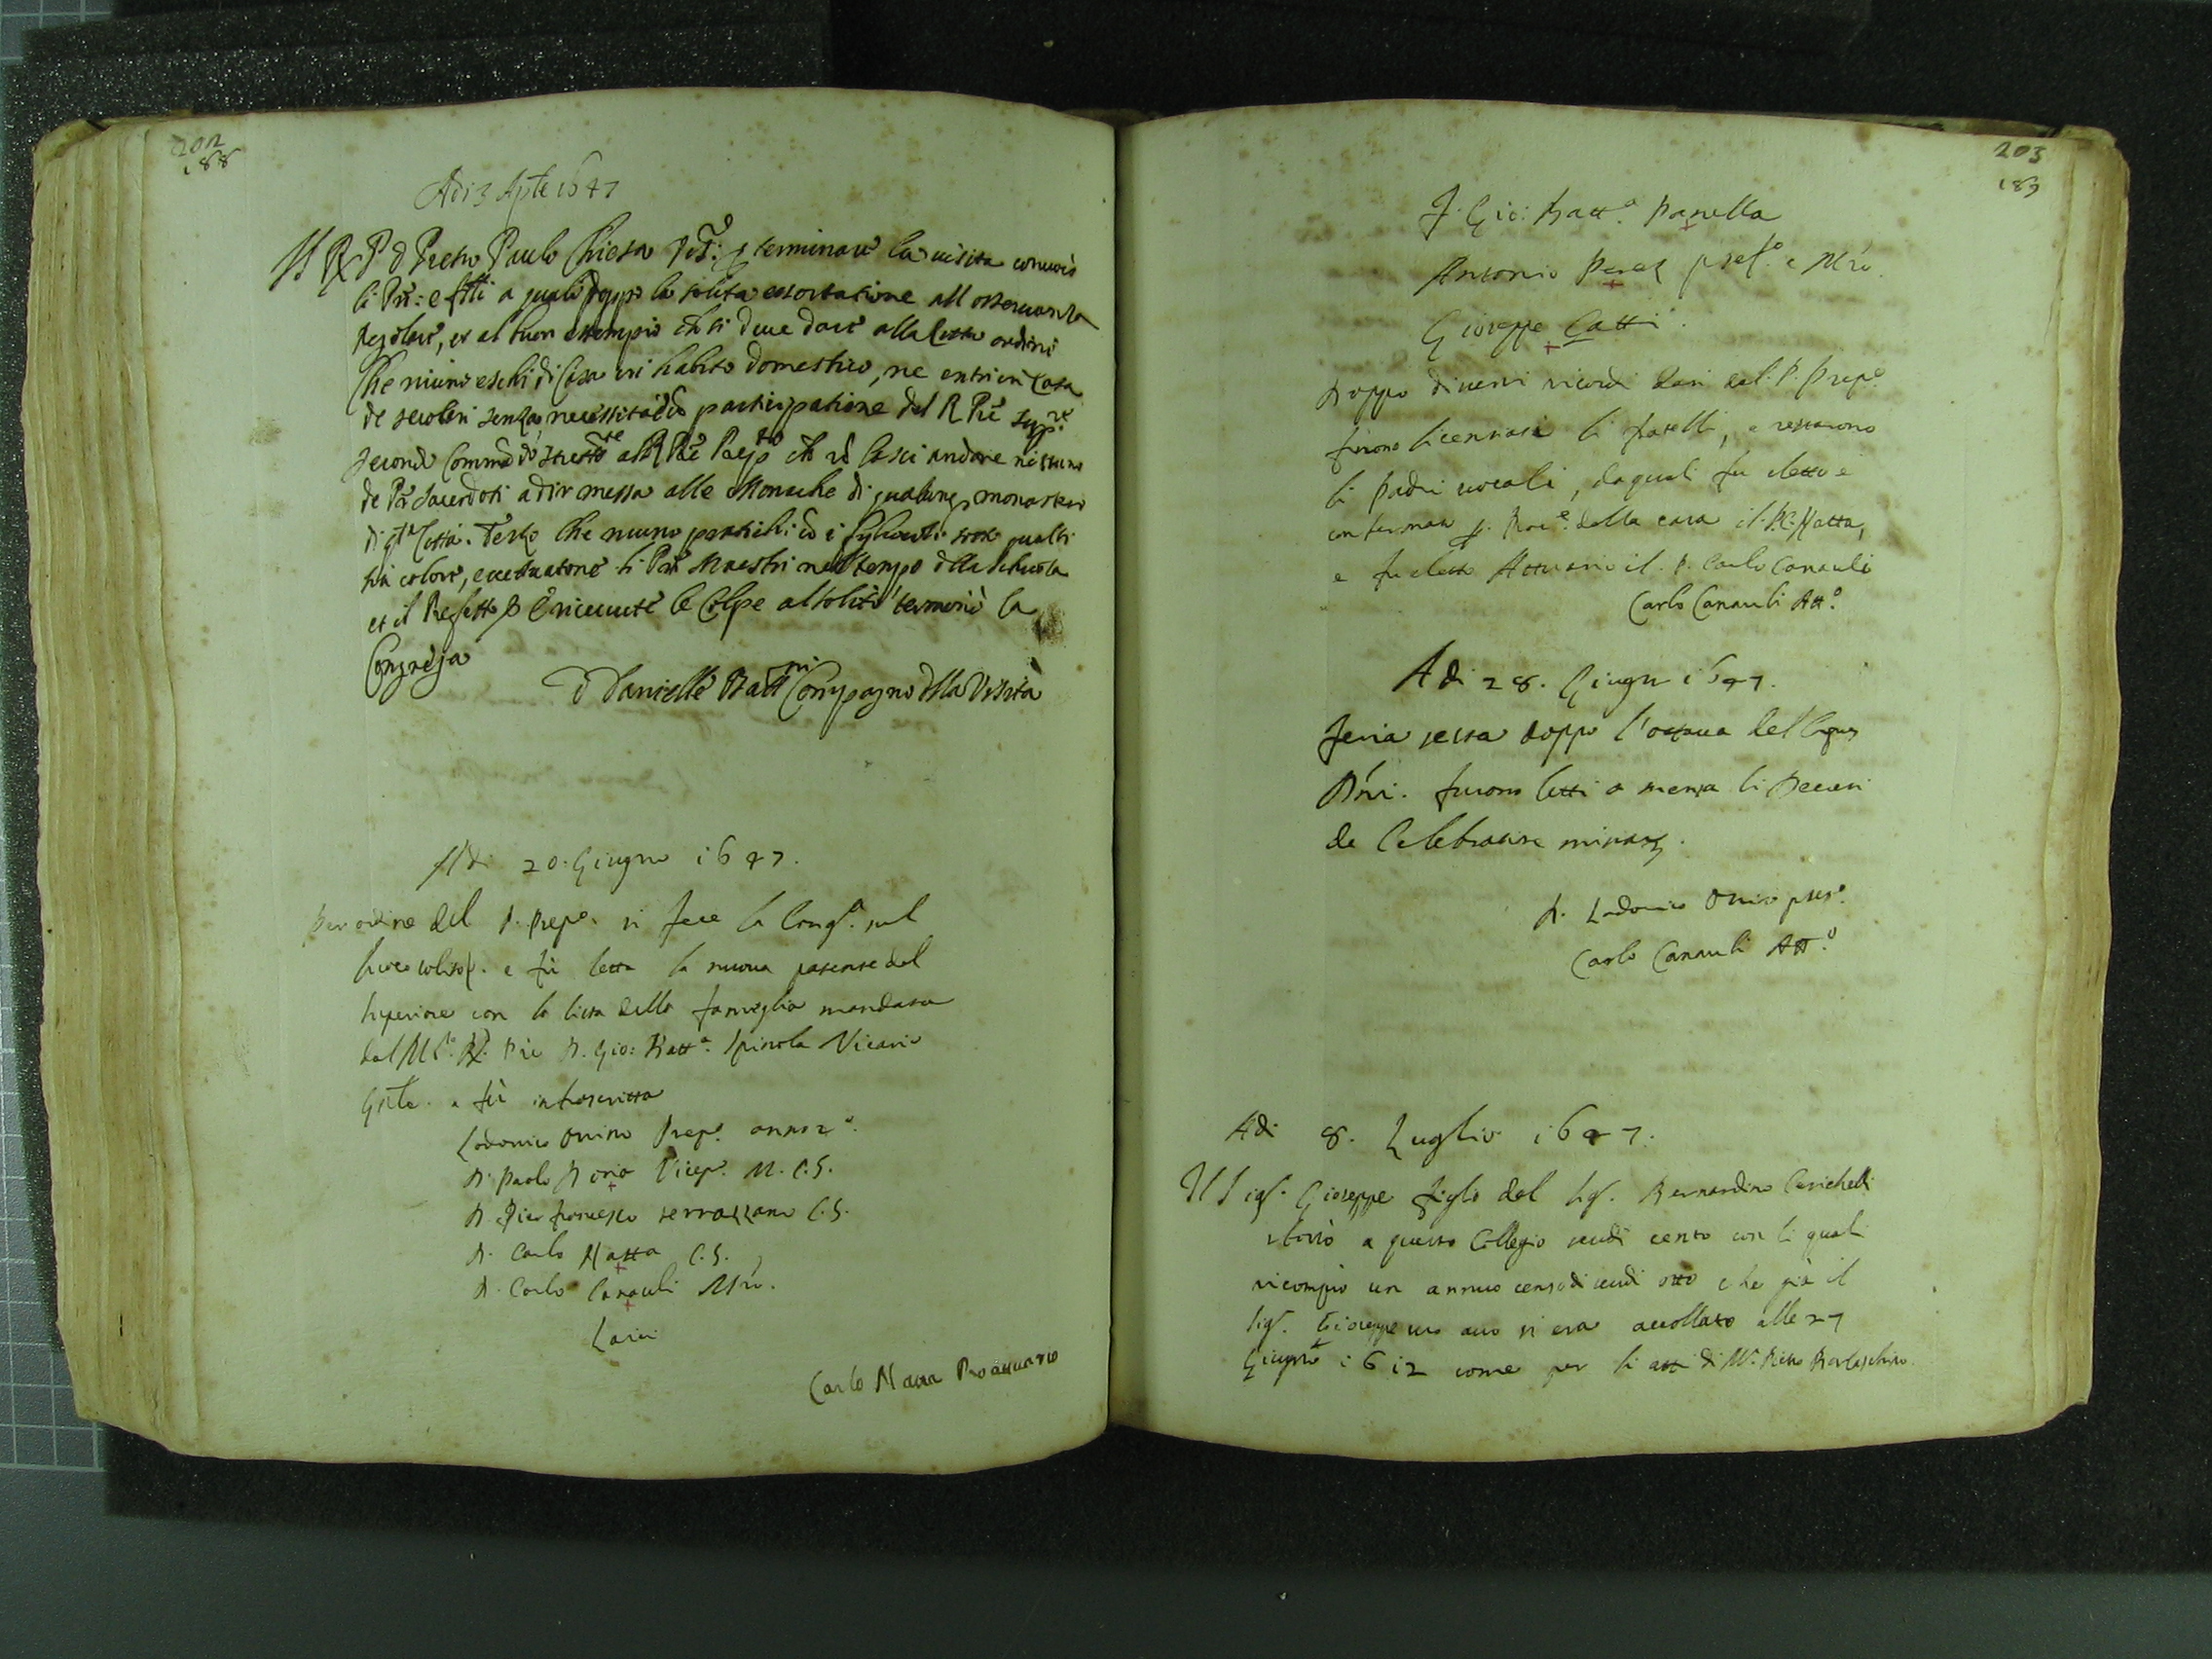 202
188
Adi 3 Aple 1647
Il R P D Pietro Paulo Chiesa terminare la visita convocò
li Pri: e flli a quali doppo la solita essortatione all osservanza
Regolare, et al buon essempio ch si deve dare alla Città ordini
Che niuno eschi di Casa in habito domestico, ne entri in casa
de secolari senza necessità e participatione del R Pre Supre
secondo al R Pre Paepto ch nō lasci andare nissuno
de Pri Sacerdoti a dir messa alle Monache di qualunq monastero
di qta Città. Terzo che niuno pratichi cō i sotto qualsi
sia colore, eccettuatone li Pri Maestri nel tempo dlla schuola
et il Prefetto E ricevute le Colpe al solito terminò la
Congrega
D Danielle Batt Compagno dlla Visita
Adi 20. Giugno 1647.
Per ordine del P. Prepo. si fece la Congne. nel
luoco solito. e fù letta la nuova patente del
superiore con la lista della famiglia mandata
dal M. R. Pre D. Gio: Batta. Spinola Vicario
Gnle. e fù infrascritta
Lodovico Prepo. anno 2o.
D. Paolo Doria Vicepo. M. C. S.
D. Pier francesco terrazzano C. S.
D. Carlo Natta C. S.
D. Carlo Canauli Mro.
Laici
Carlo Natta Proattuario
203
189
F. Gio: Batta. Panella
Antonio Perez pref.o e Mro.
Gioseppe Gatti.
Doppo diversi ricordi dati dal P. Prepo.
furono licentiati li fratelli, e restarono
li Padri vocali, da quali fu eletto e
confermato p. Proc. della casa il P. Natta,
e fu eletto Attuario il P. Carlo Canauli
Carlo Canauli Atto.
Adi 28. Giugno 1647.
feria sesta doppo l'ottava del Corpus
Dni. furono letti a mensa li Decreti
de Celebratione missarz.
D. Lodovico prepo.
Carlo Canauli Atto.
Adi 8. Luglio 1647.
Il Sigr. Gioseppe figlio del Sigr. Bernardino
sborsò a questo Collegio scudi cento con li quali
ricomprò un annuo censo di scudi otto che già il
Sigr. Gioseppe suo avo si era accollato alle 27
Giugno 1612 come per li atti di Mr. Pietro